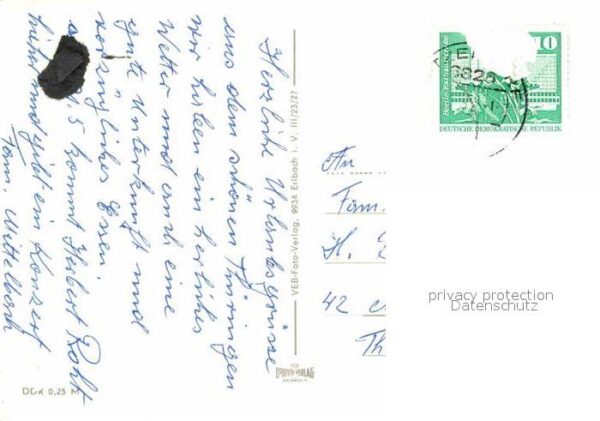 Herzliche Urlaubsgrüsse
aus dem schönen Thüringen
wir haben ein herrliches
Wetter und auch eine
gute Unterkunft und
vorzügliches Essen
5 kommt Herbert Roht
hüter und gibt ein Konzert
Fam. Wittelbach
VEB-Foto-Verlag, 9934 Erlbach i. V. III/23/27
FOTO-VERLAG
DDR 0,25 M
Berlin Rathausstrasse
10
DEUTSCHE DEMOKRATISCHE REPUBLIK
An
Fam.
H.
42
Th
privacy protection
Datenschutz